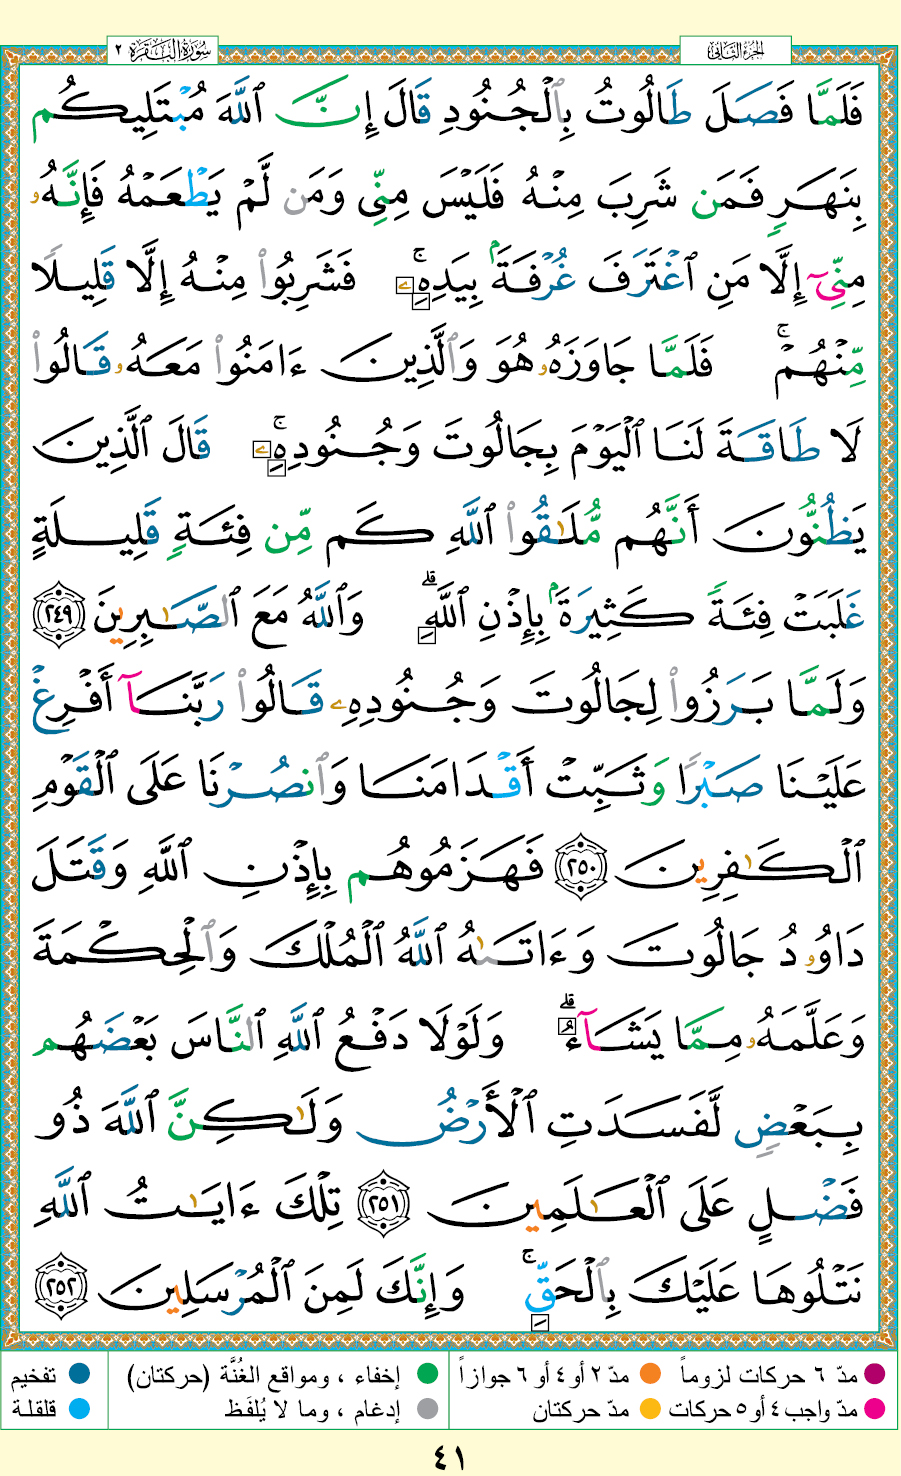 سُورَةُ البَقَرَةِ ٢
الجزء الثاني
فَلَمَّا فَصَلَ طَالُوتُ بِٱلْجُنُودِ قَالَ إِنَّ ٱللَّهَ مُبْتَلِيكُم
بِنَهَرٍ فَمَن شَرِبَ مِنْهُ فَلَيْسَ مِنِّى وَمَن لَّمْ يَطْعَمْهُ فَإِنَّهُۥ
مِنِّىٓ إِلَّا مَنِ ٱغْتَرَفَ غُرْفَةَۢ بِيَدِهِۦۚ فَشَرِبُوا۟ مِنْهُ إِلَّا قَلِيلًا
مِّنْهُمْۚ فَلَمَّا جَاوَزَهُۥ هُوَ وَٱلَّذِينَ ءَامَنُوا۟ مَعَهُۥ قَالُوا۟
لَا طَاقَةَ لَنَا ٱلْيَوْمَ بِجَالُوتَ وَجُنُودِهِۦۚ قَالَ ٱلَّذِينَ
يَظُنُّونَ أَنَّهُم مُّلَٰقُوا۟ ٱللَّهِ كَم مِّن فِئَةٍ قَلِيلَةٍ
غَلَبَتْ فِئَةً كَثِيرَةَۢ بِإِذْنِ ٱللَّهِۗ وَٱللَّهُ مَعَ ٱلصَّٰبِرِينَ ٢٤٩
وَلَمَّا بَرَزُوا۟ لِجَالُوتَ وَجُنُودِهِۦ قَالُوا۟ رَبَّنَآ أَفْرِغْ
عَلَيْنَا صَبْرًا وَثَبِّتْ أَقْدَامَنَا وَٱنصُرْنَا عَلَى ٱلْقَوْمِ
ٱلْكَٰفِرِينَ ٢٥٠ فَهَزَمُوهُم بِإِذْنِ ٱللَّهِ وَقَتَلَ
دَاوُۥدُ جَالُوتَ وَءَاتَىٰهُ ٱللَّهُ ٱلْمُلْكَ وَٱلْحِكْمَةَ
وَعَلَّمَهُۥ مِمَّا يَشَآءُۗ وَلَوْلَا دَفْعُ ٱللَّهِ ٱلنَّاسَ بَعْضَهُم
بِبَعْضٍ لَّفَسَدَتِ ٱلْأَرْضُ وَلَٰكِنَّ ٱللَّهَ ذُو
فَضْلٍ عَلَى ٱلْعَٰلَمِينَ ٢٥١ تِلْكَ ءَايَٰتُ ٱللَّهِ
نَتْلُوهَا عَلَيْكَ بِٱلْحَقِّۚ وَإِنَّكَ لَمِنَ ٱلْمُرْسَلِينَ ٢٥٢
مدّ ٦ حركات لزوماً مدّ ٢ أو ٤ أو ٦ جوازاً إخفاء ، ومواقع الغُنَّة (حركتان) تفخيم
مدّ واجب ٤ أو ٥ حركات مدّ حركتان إدغام ، وما لا يُلفَظ قلقلة
٤١